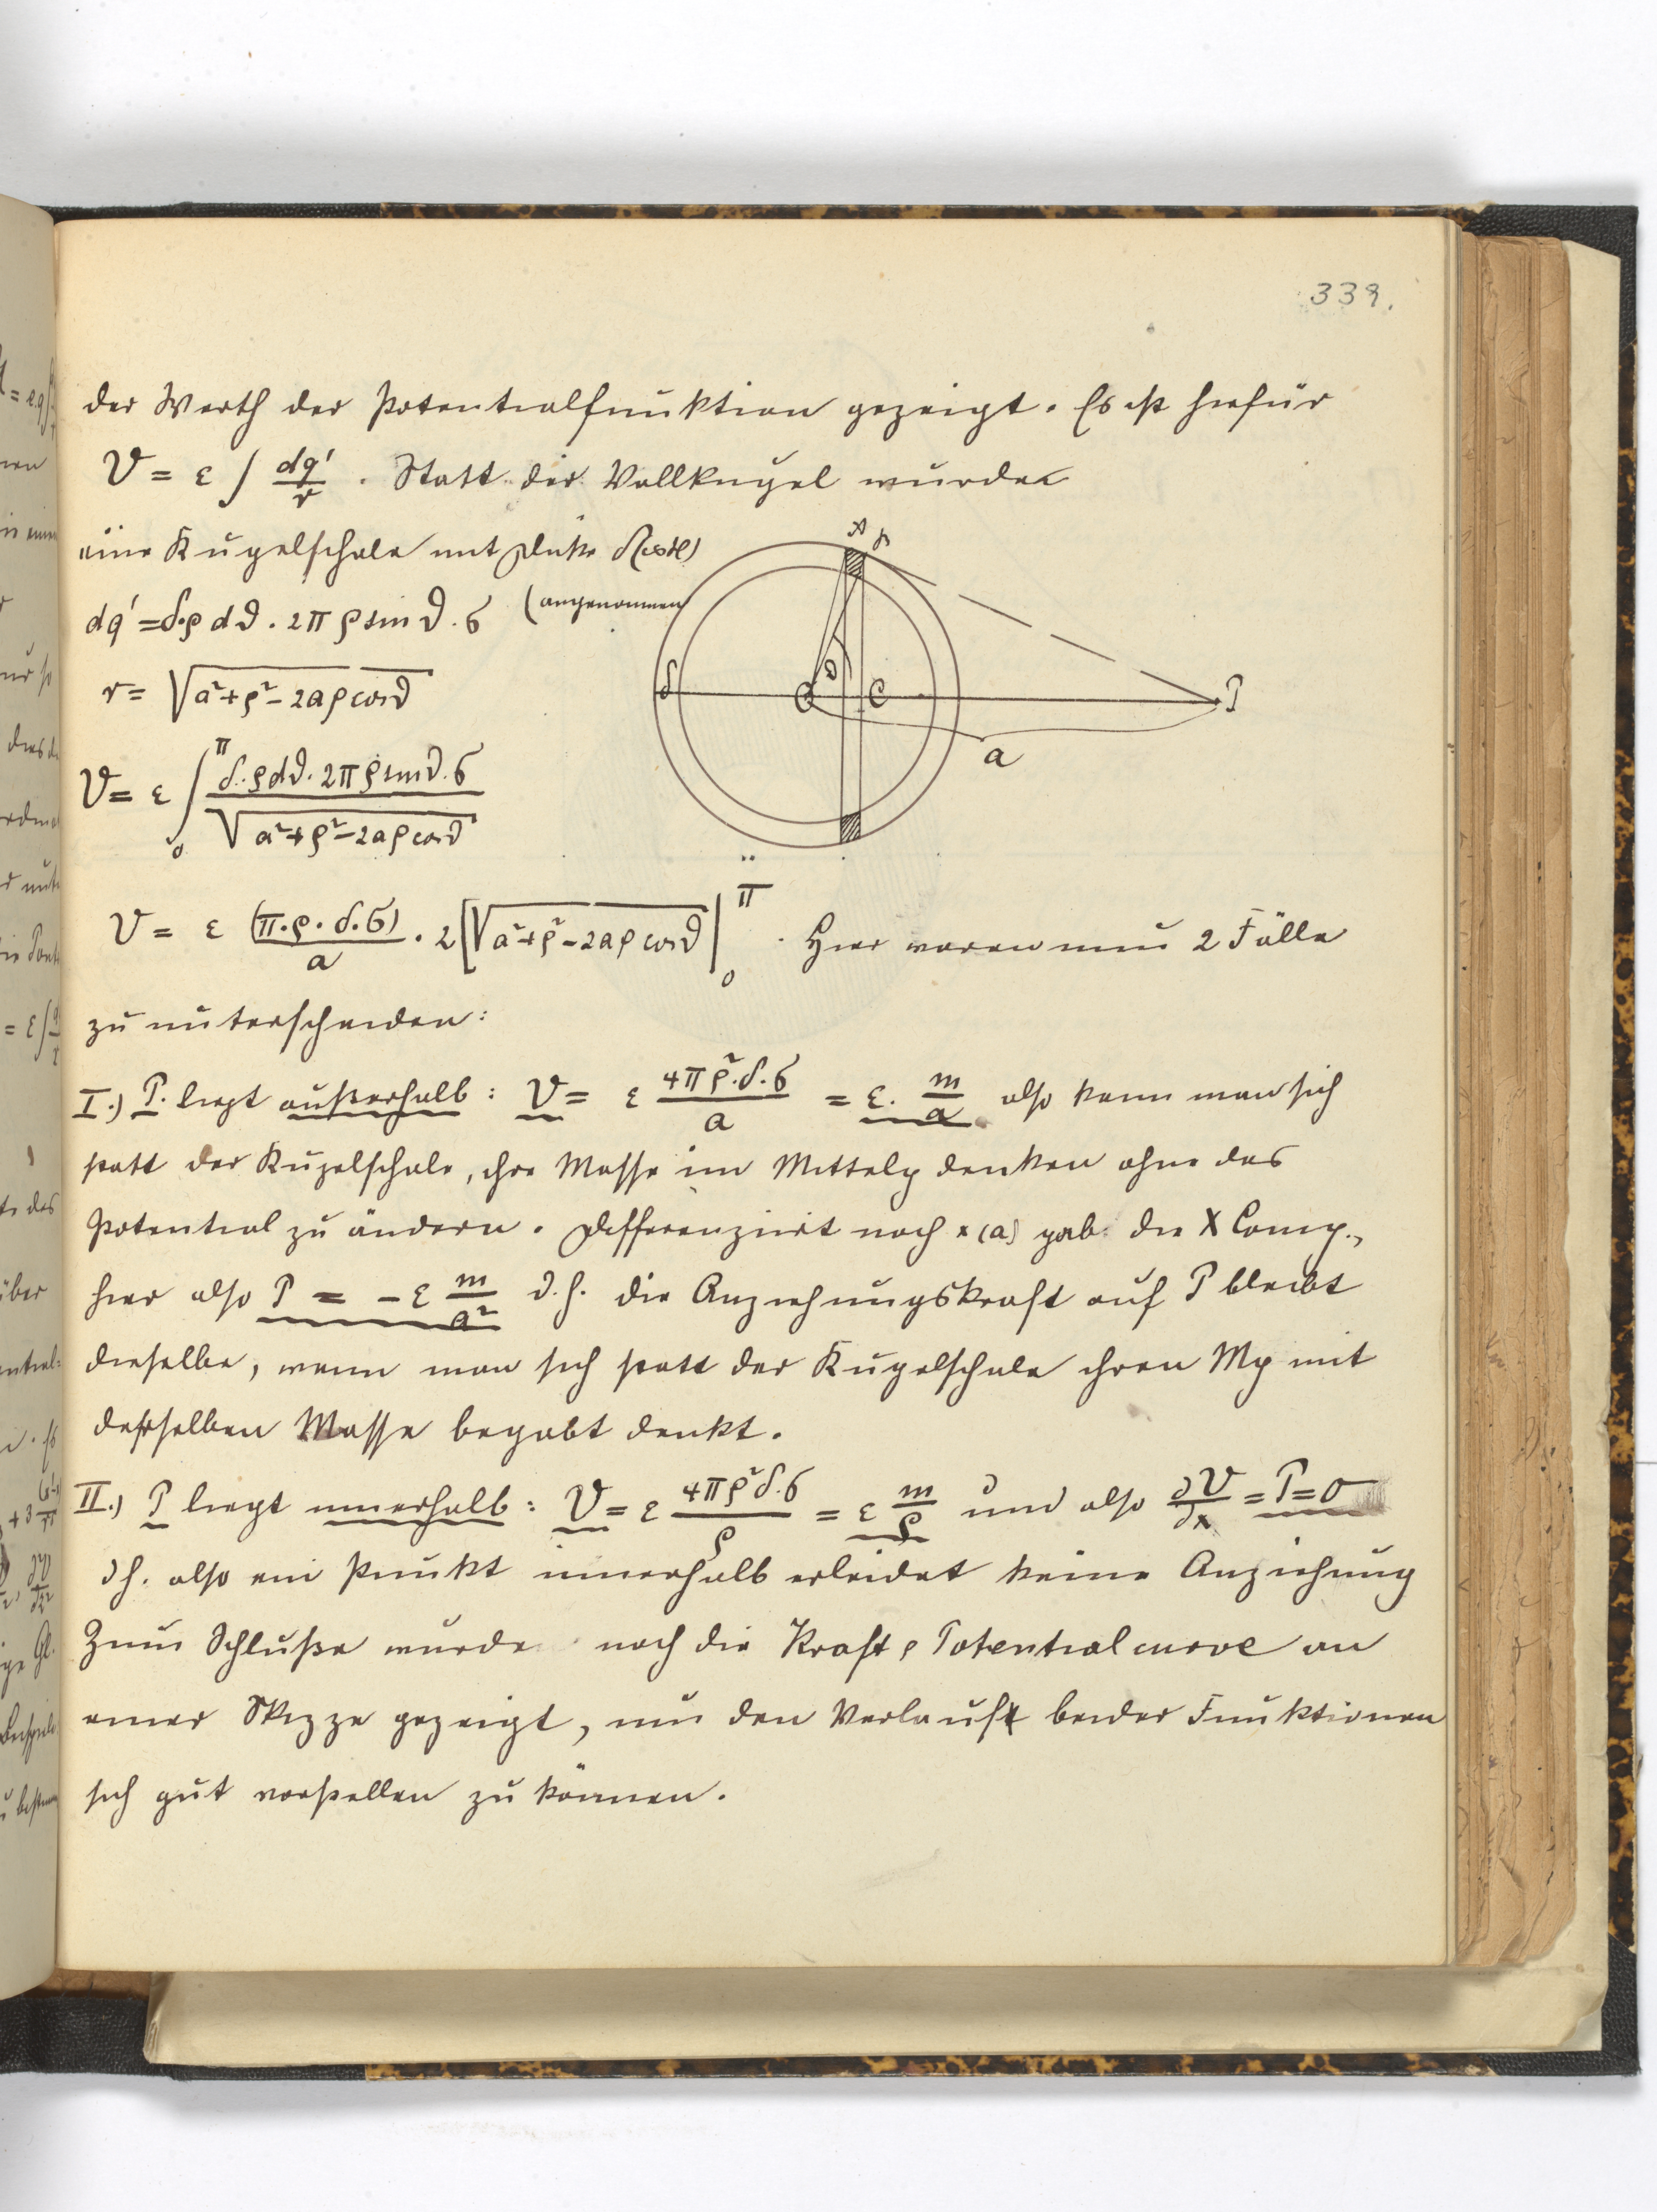 339.
der Werth der Potentialfunktion gezeigt. Es ist hiefür
V = ε ∫ dq'/r . Statt der Vollkugel wurde
eine Kugelschale mit Dicke δ
(angenommen
dq' = δ.ρ dϑ . 2π ρ sin ϑ . σ
r = √(a²+ρ²-2aρ cos ϑ)
V = ε ∫₀^π (δ.ρdϑ. 2πρ sin ϑ. σ) / √(a²+ρ²-2aρ cos ϑ)
V = ε (π.ρ.δ.σ)/a . 2 [√(a²+ρ²-2aρ cos ϑ)|₀^π . Hier waren nun 2 Fälle
zu unterscheiden:
I.) P. liegt außerhalb : V = ε 4πρ².δ.σ/a = ε. m/a also kann man sich
statt der Kugelschale, ihre Masse im Mittelp denken ohne das
Potential zu ändern. Differenzirt nach x (a) gab die X Comp.,
hier also P = - ε m/a² d.h. die Anziehungskraft auf P bleibt
dieselbe, wenn man sich statt der Kugelschale ihren Mp mit
desselben Masse begabt denkt.
II.) P liegt innerhalb : V = ε 4πρ²δ.σ/ρ = ε m/ρ und also ∂V/∂x = P = 0
d h. also ein Punkt innerhalb erleidet keine Anziehung
Zum Schluße wurde noch die Kraft, Potentialcurve an
einer Skizze gezeigt, um den Verlauf beider Funktionen
sich gut vorstellen zu können.
A
δ
ϑ
O
C
P
a